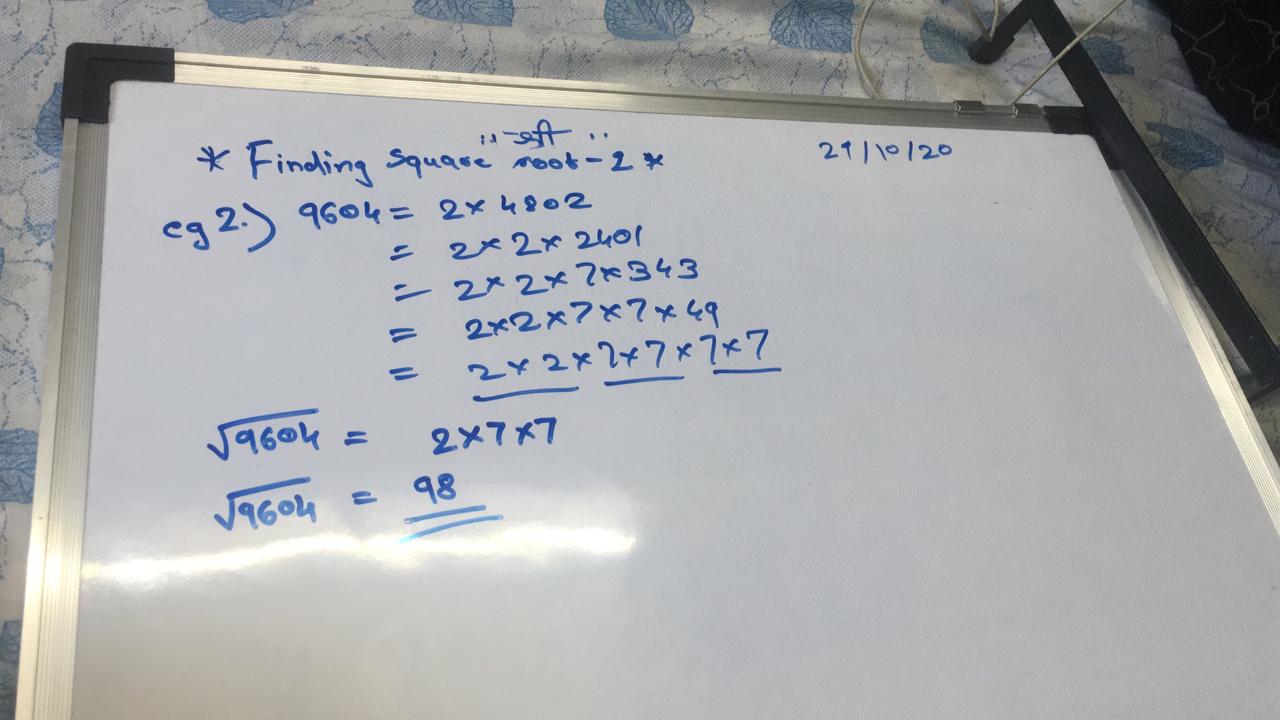 ·· श्री ··
* Finding square root - 2 *
29/10/20
eg 2.) 9604 = 2 × 4802
= 2 × 2 × 2401
= 2 × 2 × 7 × 343
= 2 × 2 × 7 × 7 × 49
= 2 × 2 × 7 × 7 × 7 × 7
√9604 = 2 × 7 × 7
√9604 = 98